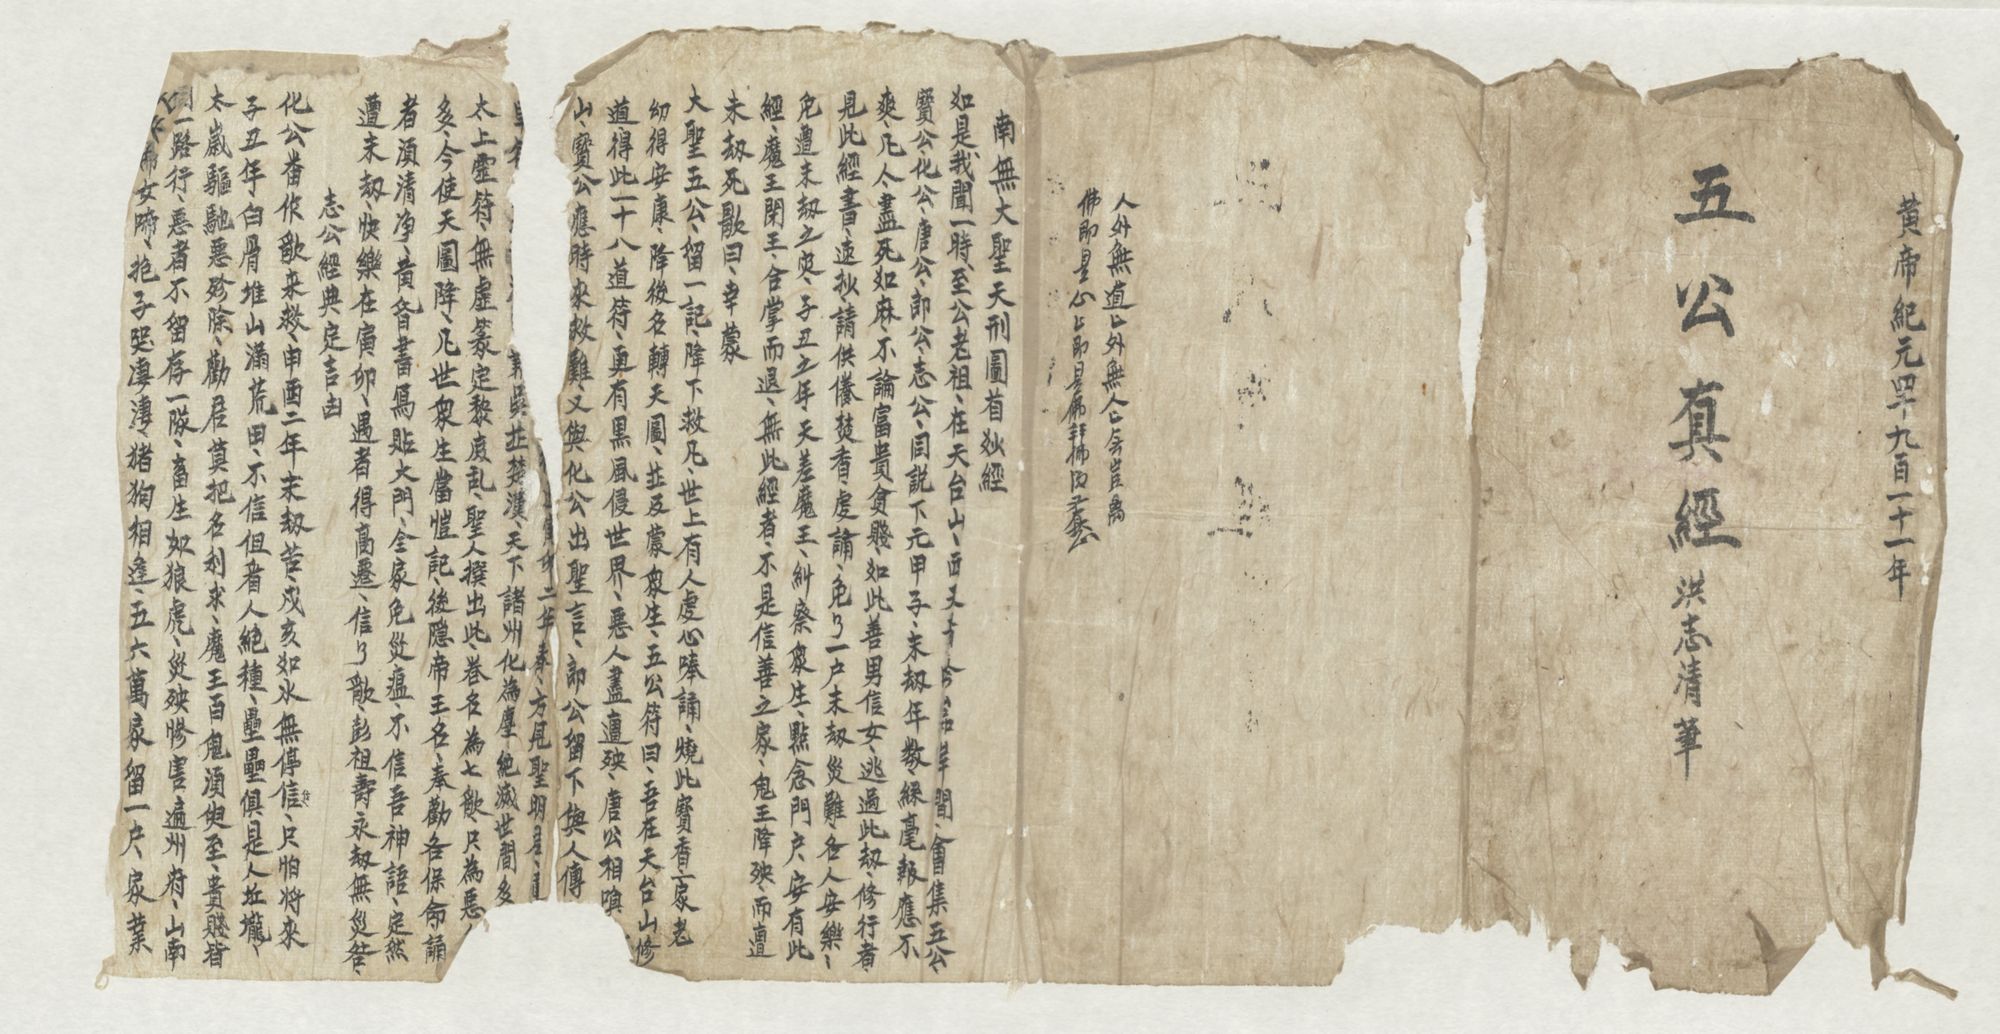 黃帝紀元四千九百一十一年
五公真經 洪志清筆
人外無道
佛即是心
南無大聖天刑圖首妙經
如是我聞一時、至公老祖、在天台山、會集五公、
寶公、化公、唐公、郎公、志公、同說下元甲子、末刼年数、縁毫報應不
爽、凡人盡死如麻、不論富貴貧賤、如此善男信女、逃過此刼、修行者、
見此經書、速抄、請供養焚香、虔誦、免了一户末刼災難、各人安樂、
免遭末刼之灾、子丑之年、天差魔王、糾察衆生、㸃念門户、安有此
經、魔王閉王、合掌而退、無此經者、不是信善之家、鬼王降殃、而遭
末刼死歌曰、幸蒙
大聖五公、留一記、降下救凡、世上有人虔心唪誦、燒此寶香、一家老
幼得安康、降後名轉天圖、並及蒙衆生、五公符曰、吾在天台山修
道得此一十八道符、更有黑風侵世界、惡人盡遭殃、唐公相嗔
山、寶公應時來救難、又與化公出聖言、郎公留下與人傳
二年春、方見聖明君、
吳並楚漢、天下諸州化為塵、絶滅世間多
太上靈符、無虛篆定黎庶乱、聖人撰出此、卷名為七歌、只為惡、
多、今使天圖降、凡世衆生當慥記、後隱帝王名、奉勸各保命誦
者須清净、黄昏書寫貼大門、全家免災瘟、不信吾神語、定然
遭末刼、快樂在寅卯、遇者得高遷、信了歌、彭祖壽永刼無災笙、
志公經典定吉凶
化公番作歌來救、申酉二年末刼苦、戍亥如水無停信、只怕將來
子丑年、白骨堆山滿荒田、不信但看人絶種、壘壘俱是人坵壠、
太嵗驅馳惡殄除、勸君莫把名利求、魔王百鬼須臾至、貴賤皆
一路行、惡者不留存一隊、畜生如狼虎、災殃慘害、遍州府、山南
女啼、抱子哭凄淒、猪狗相逢、五六萬家留一户、家業